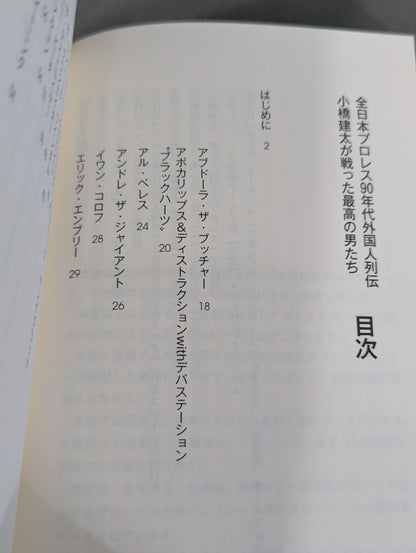 全日本プロレス90年代外国人列伝
小橋建太が戦った最高の男たち
目次
はじめに 2
アブドーラ・ザ・ブッチャー 18
アポカリップス&ディストラクションwithデバステーション
“ブラックハーツ” 20
アル・ペレス 24
アンドレ・ザ・ジャイアント 26
イワン・コロフ 28
エリック・エンブリー 29